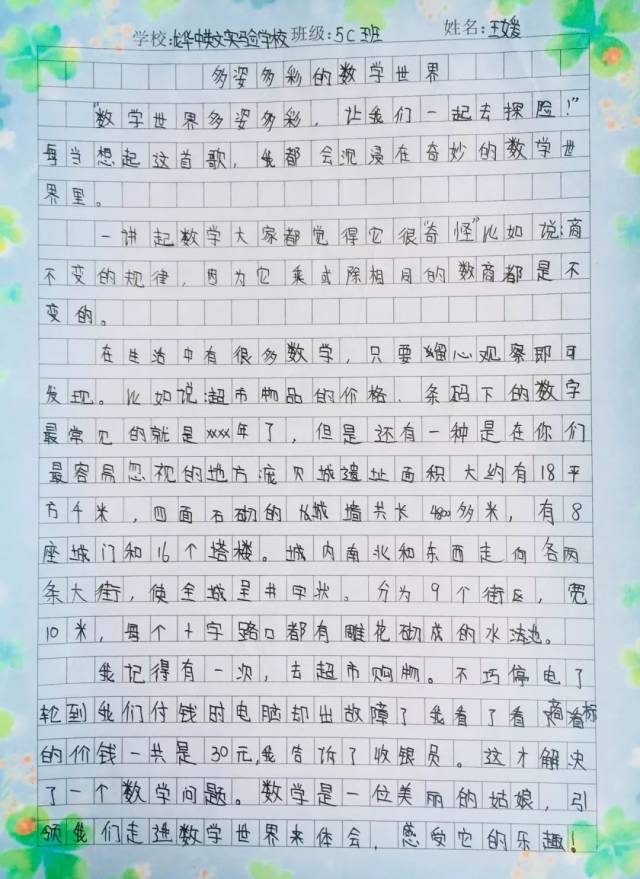 学校:龙华中英文实验学校 班级:5C班 姓名:王媛
多姿多彩的数学世界
“数学世界多姿多彩，让我们一起去探险！”
每当想起这首歌，我都会沉浸在奇妙的数学世
界里。
一讲起数学大家都觉得它很“奇怪”比如说:商
不变的规律，因为它乘或除相同的数商都是不
变的。
在生活中有很多数学，只要细心观察即可
发现。比如说:超市物品的价格、条码下的数字
最常见的就是xxx年了，但是还有一种是在你们
最容易忽视的地方庞贝城遗址面积大约有18平
方千米，四面石砌的城墙共长4800多米，有8
座城门和16个塔楼。城内南北和东西走向各两
条大街，使全城呈井字状。分为9个街区，宽
10米，每个十字路口都有雕花砌成的水池。
我记得有一次，去超市购物。不巧停电了
轮到我们付钱时电脑却出故障了我看了看商标
的价钱一共是30元,我告诉了收银员。这才解决
了一个数学问题。数学是一位美丽的姑娘，引
领我们走进数学世界来体会，感受它的乐趣！